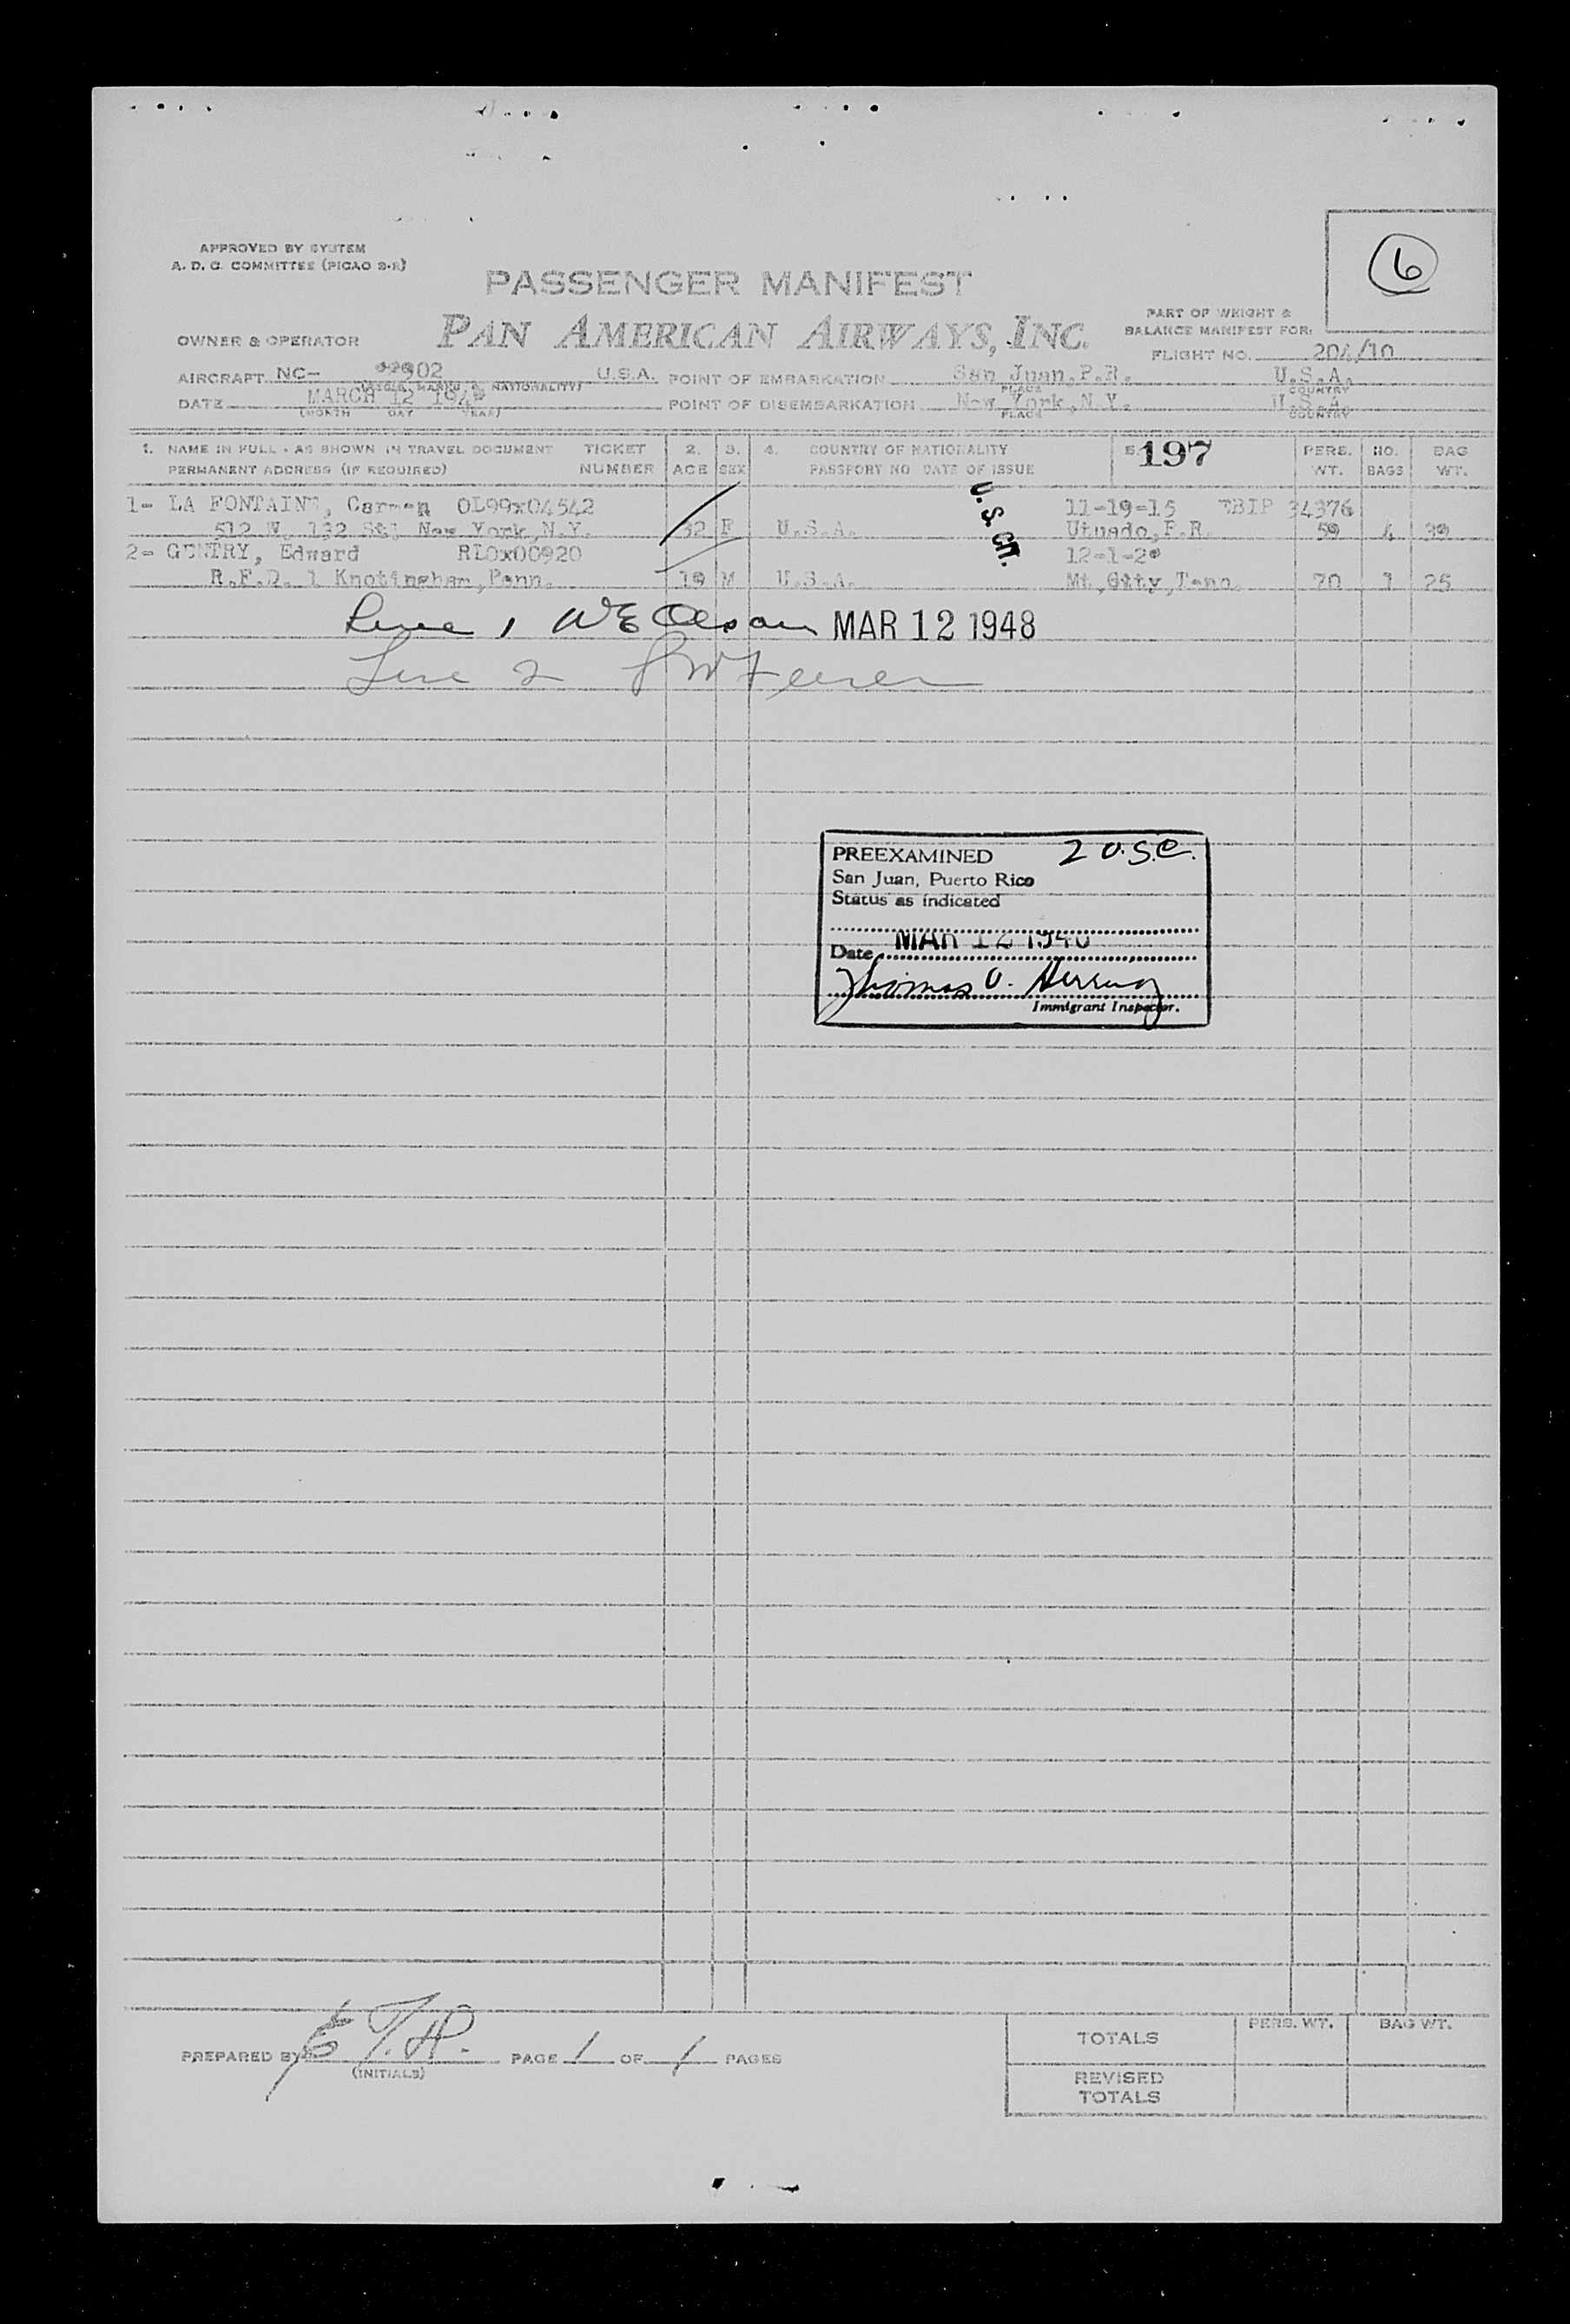 APPROVED BY SYSTEM
A. D. C. COMMITTEE (PICAO 9-R)
6
PASSENGER MANIFEST
PAN AMERICAN AIRWAYS, INC.
OWNER & OPERATOR
PART OF WEIGHT &
BALANCE MANIFEST FOR:
FLIGHT NO. 204/10
AIRCRAFT NC- 902 U.S.A. POINT OF EMBARKATION San Juan, P.R. U.S.A.
MARKS & NATIONALITY) PLACE COUNTRY
DATE MARCH 12 194 POINT OF DISEMBARKATION New York, N.Y. U.S.A.
(MONTH DAY YEAR) PLACE COUNTRY
1. NAME IN FULL - AS SHOWN IN TRAVEL DOCUMENT TICKET 2. 3. 4. COUNTRY OF NATIONALITY 5. 197 PERS. NO. BAG
PERMANENT ADDRESS (IF REQUIRED) NUMBER AGE SEX PASSPORT NO DATE OF ISSUE WT. BAGS WT.
1- LA FONTAINE, Carmen OL99x04542 11-19-15 34376
512 W. 132 St. New York, N.Y. 32 F U.S.A. Utuado, P.R. 59 4 39
U.S. CIT.
2- GENTRY, Edward RLOx00920 12-1-2
R.F.D. 1 Knotingham, Penn. 19 M U.S.A. Mt. City, Tenn. 70 1 25
Line 1 WE Olson MAR 12 1948
Line 2
PREEXAMINED 2 U.S.C.
San Juan, Puerto Rico
Status as indicated
Date MAR 12 1948
Thomas O.
Immigrant Inspector.
PREPARED BY T.H. PAGE 1 OF 1 PAGES
(INITIALS)
PERS. WT. BAG WT.
TOTALS
REVISED
TOTALS